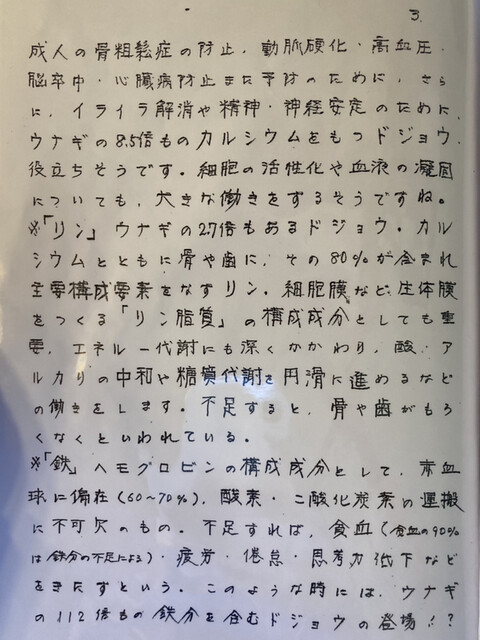 3.
成人の骨粗鬆症の防止、動脈硬化・高血圧・
脳卒中・心臓病防止また予防のために、さら
に、イライラ解消や精神・神経安定のために、
ウナギの8.5倍ものカルシウムをもつドジョウ、
役立ちそうです。細胞の活性化や血液の凝固
についても、大きな働きをするそうですね。
※「リン」ウナギの2.7倍もあるドジョウ。カル
シウムとともに骨や歯に、その80%が含まれ
主要構成要素をなすリン。細胞膜など、生体膜
をつくる「リン脂質」の構成成分としても重
要、エネルー代謝にも深くかかわり、酸・ア
ルカリの中和や糖質代謝を円滑に進めるなど
の働きをします。不足すると、骨や歯がもろ
くなくといわれている。
※「鉄」ヘモグロビンの構成成分として、赤血
球に偏在(60~70%)、酸素・二酸化炭素の運搬
に不可欠のもの。不足すれば、貧血(貧血の90%
は鉄分の不足による)・疲労・倦怠・思考力低下など
をきたすという。このような時には、ウナギ
の112倍もの鉄分を含むドジョウの登場!?